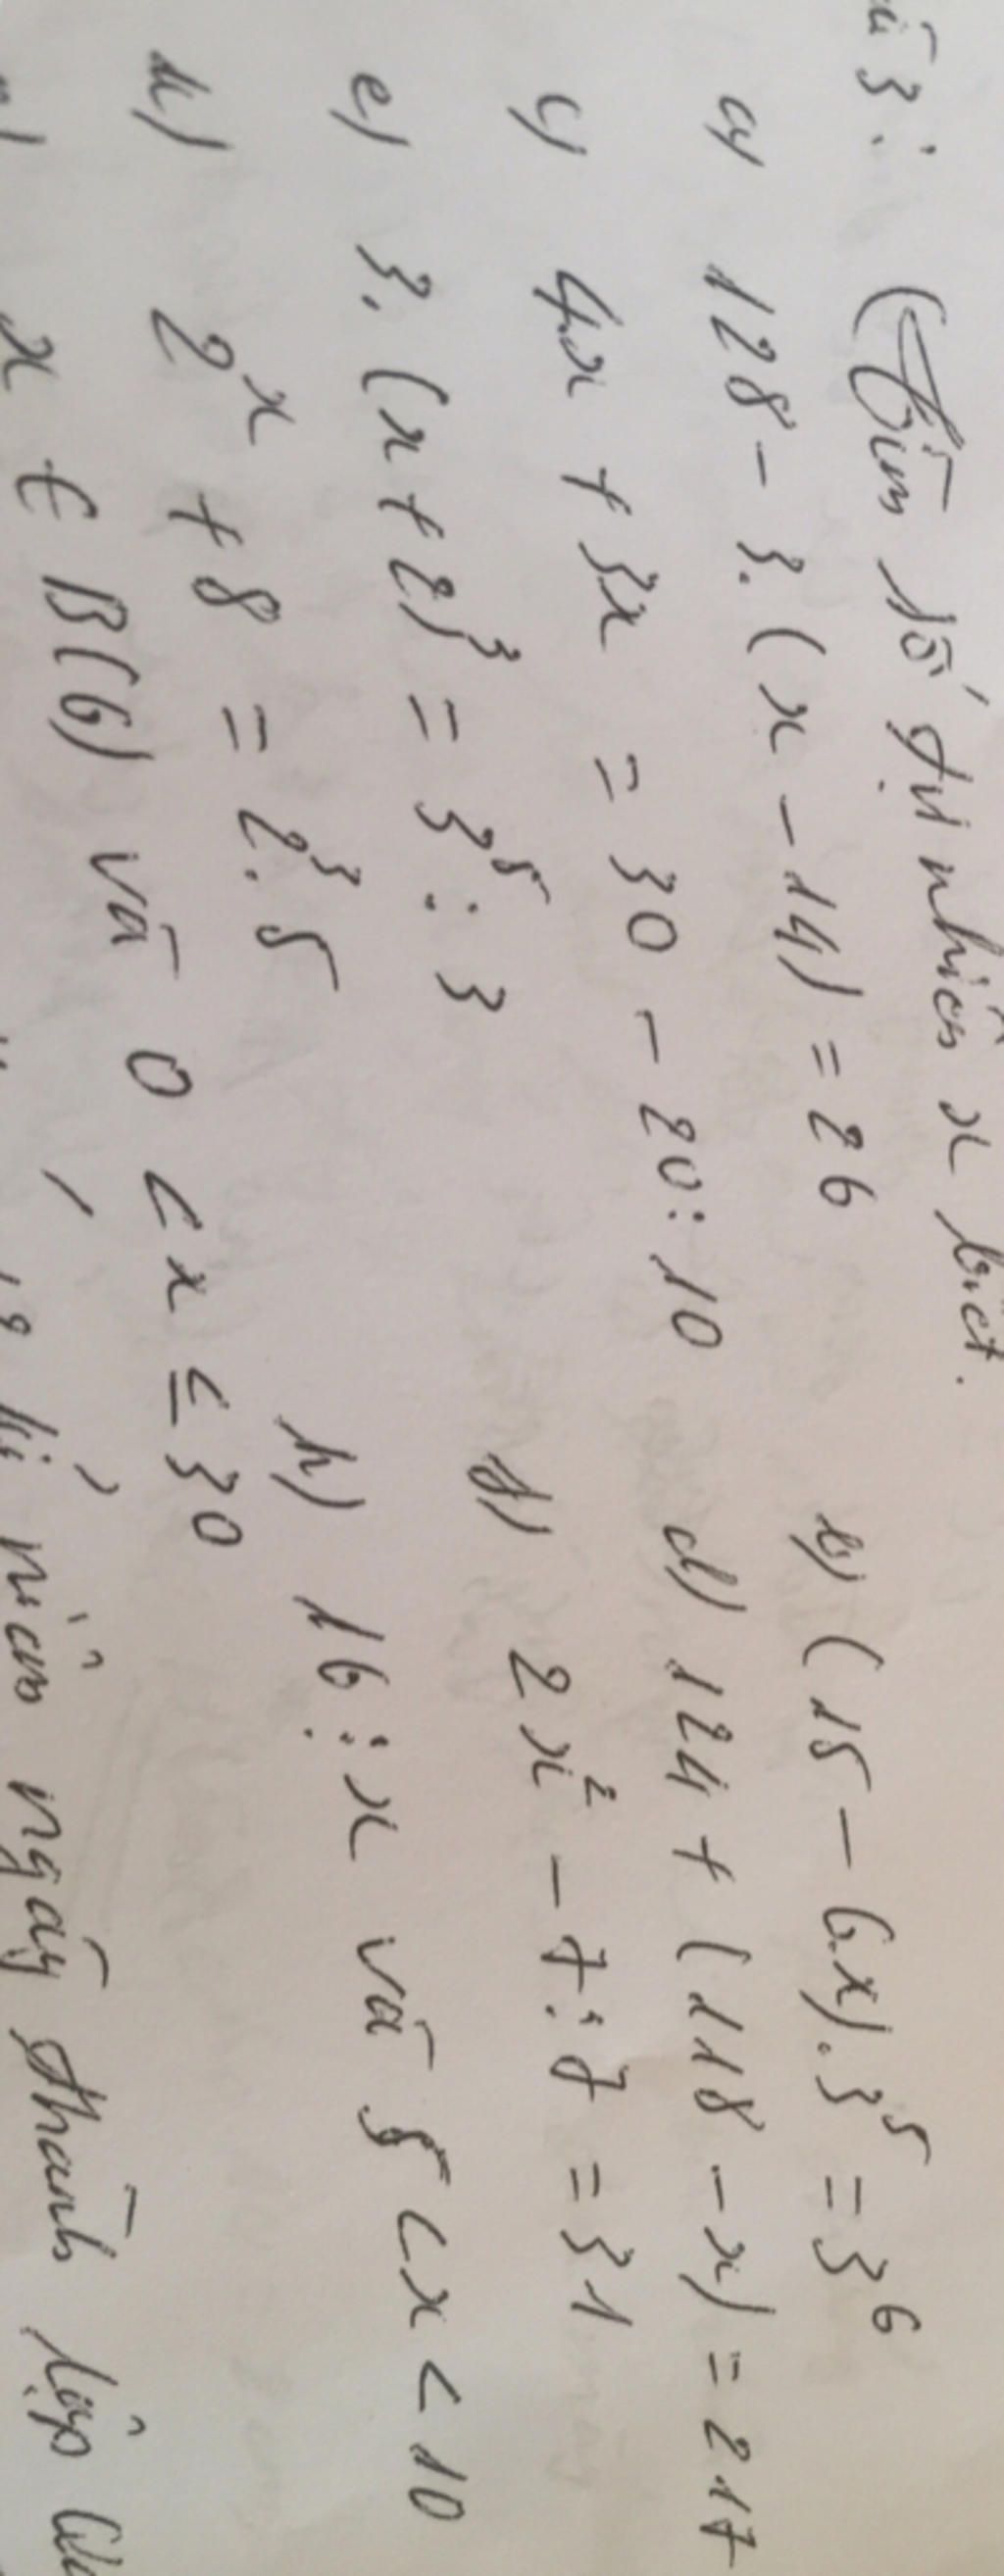 3:
(Tìm số tự nhiên x biết.
a) 128 - 3.(x - 14) = 26
b) (15 - 6x).3⁵ = 3⁶
c) 4x + 3x = 30 - 20:10
d) 124 + (118 - x) = 217
e) 3.(x + 2)³ = 3⁵ : 3
f) 2x² - 7:7 = 31
2ˣ + 8 = 2³.5
h) 16 ⋮ x và 5 < x < 10
x ∈ B(6) và 0 < x ≤ 30
niệm ngày thành lập